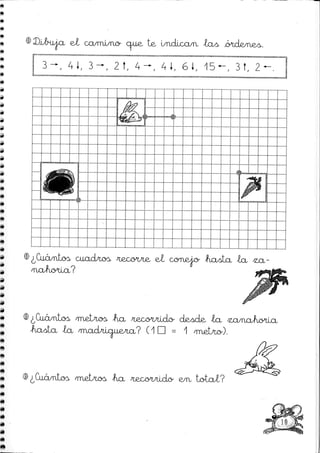 Dibuja el camino que te indican las órdenes.
3 →, 4 ↓, 3 →, 2 ↑, 4 →, 4 ↓, 6 ↓, 15 ←, 3 ↑, 2 ←.
¿Cuántos cuadros recorre el conejo hasta la za-
nahoria?
¿Cuántos metros ha recorrido desde la zanahoria
hasta la madriguera? (1 □ = 1 metro).
¿Cuántos metros ha recorrido en total?
18